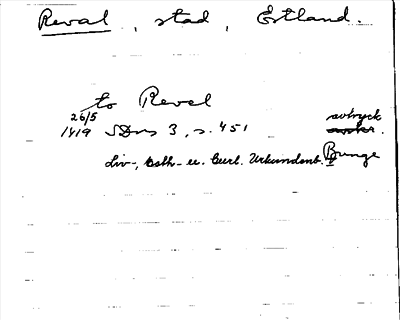 Reval, stad, Estland.
to Revel
26/5
1419 SDns 3, s. 451 avtryck
Liv-, Esth- u. Curl. Urkundenb. V Bunge